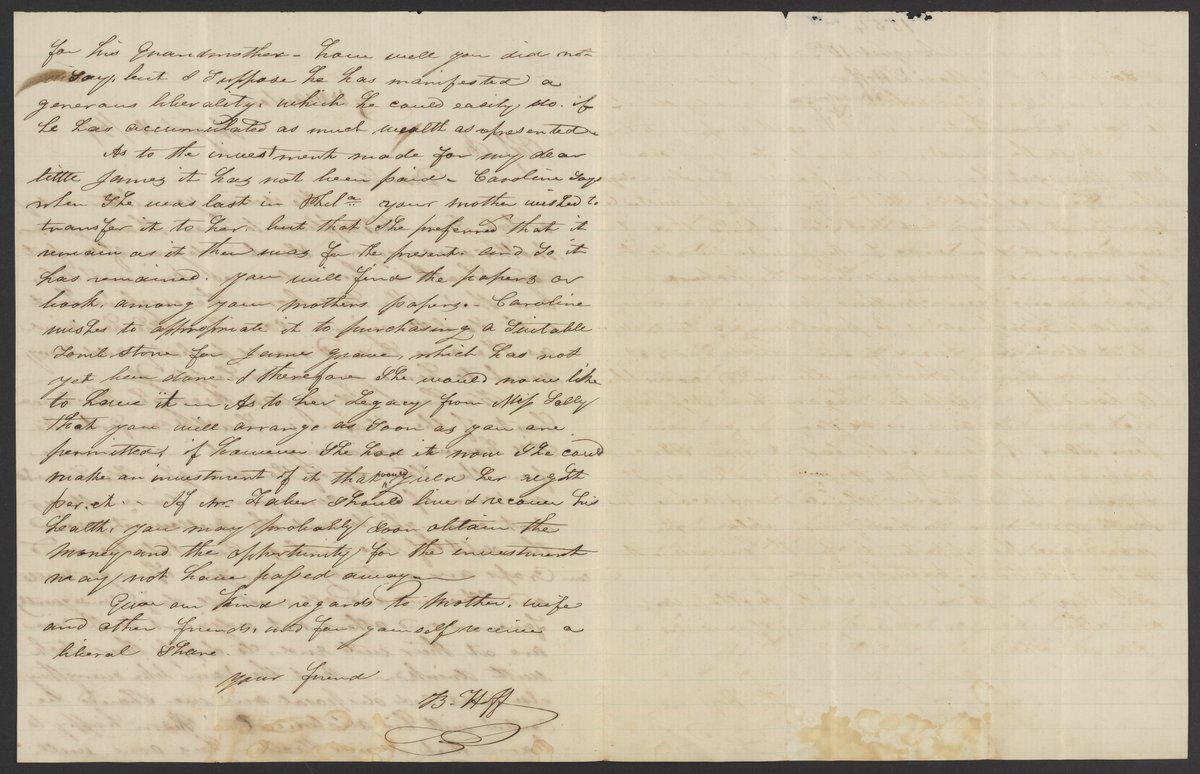 for his Grandmother - how well you did not
say, but I suppose he has manifested a
generous liberality, which he could easily do, if
he has accumulated as much wealth as represented
As to the investment made for my dear
little James it has not been paid - Caroline says
when she was last in Phila your mother wished to
transfer it to her, but that she preferred that it
remain as it then was for the present, and so it
has remained. you will find the papers or
book, among your mothers papers. Caroline
wishes to appropriate it to purchasing a suitable
Tomb stone for James grave, which has not
yet been done & therefore she would now like
to have it - As to her Legacy from Miss Sally
that you will arrange as soon as you are
permitted, if however she had it now she could
make an investment of it that would yield her eight
per ct. - If Mr. Faber should live & recover his
health, you may probably soon obtain the
money and the opportunity for the investment
may not have passed away
Give our kind regards to Mother, wife
and other friends, and for yourself receive a
liberal share.
your friend
B. Hff